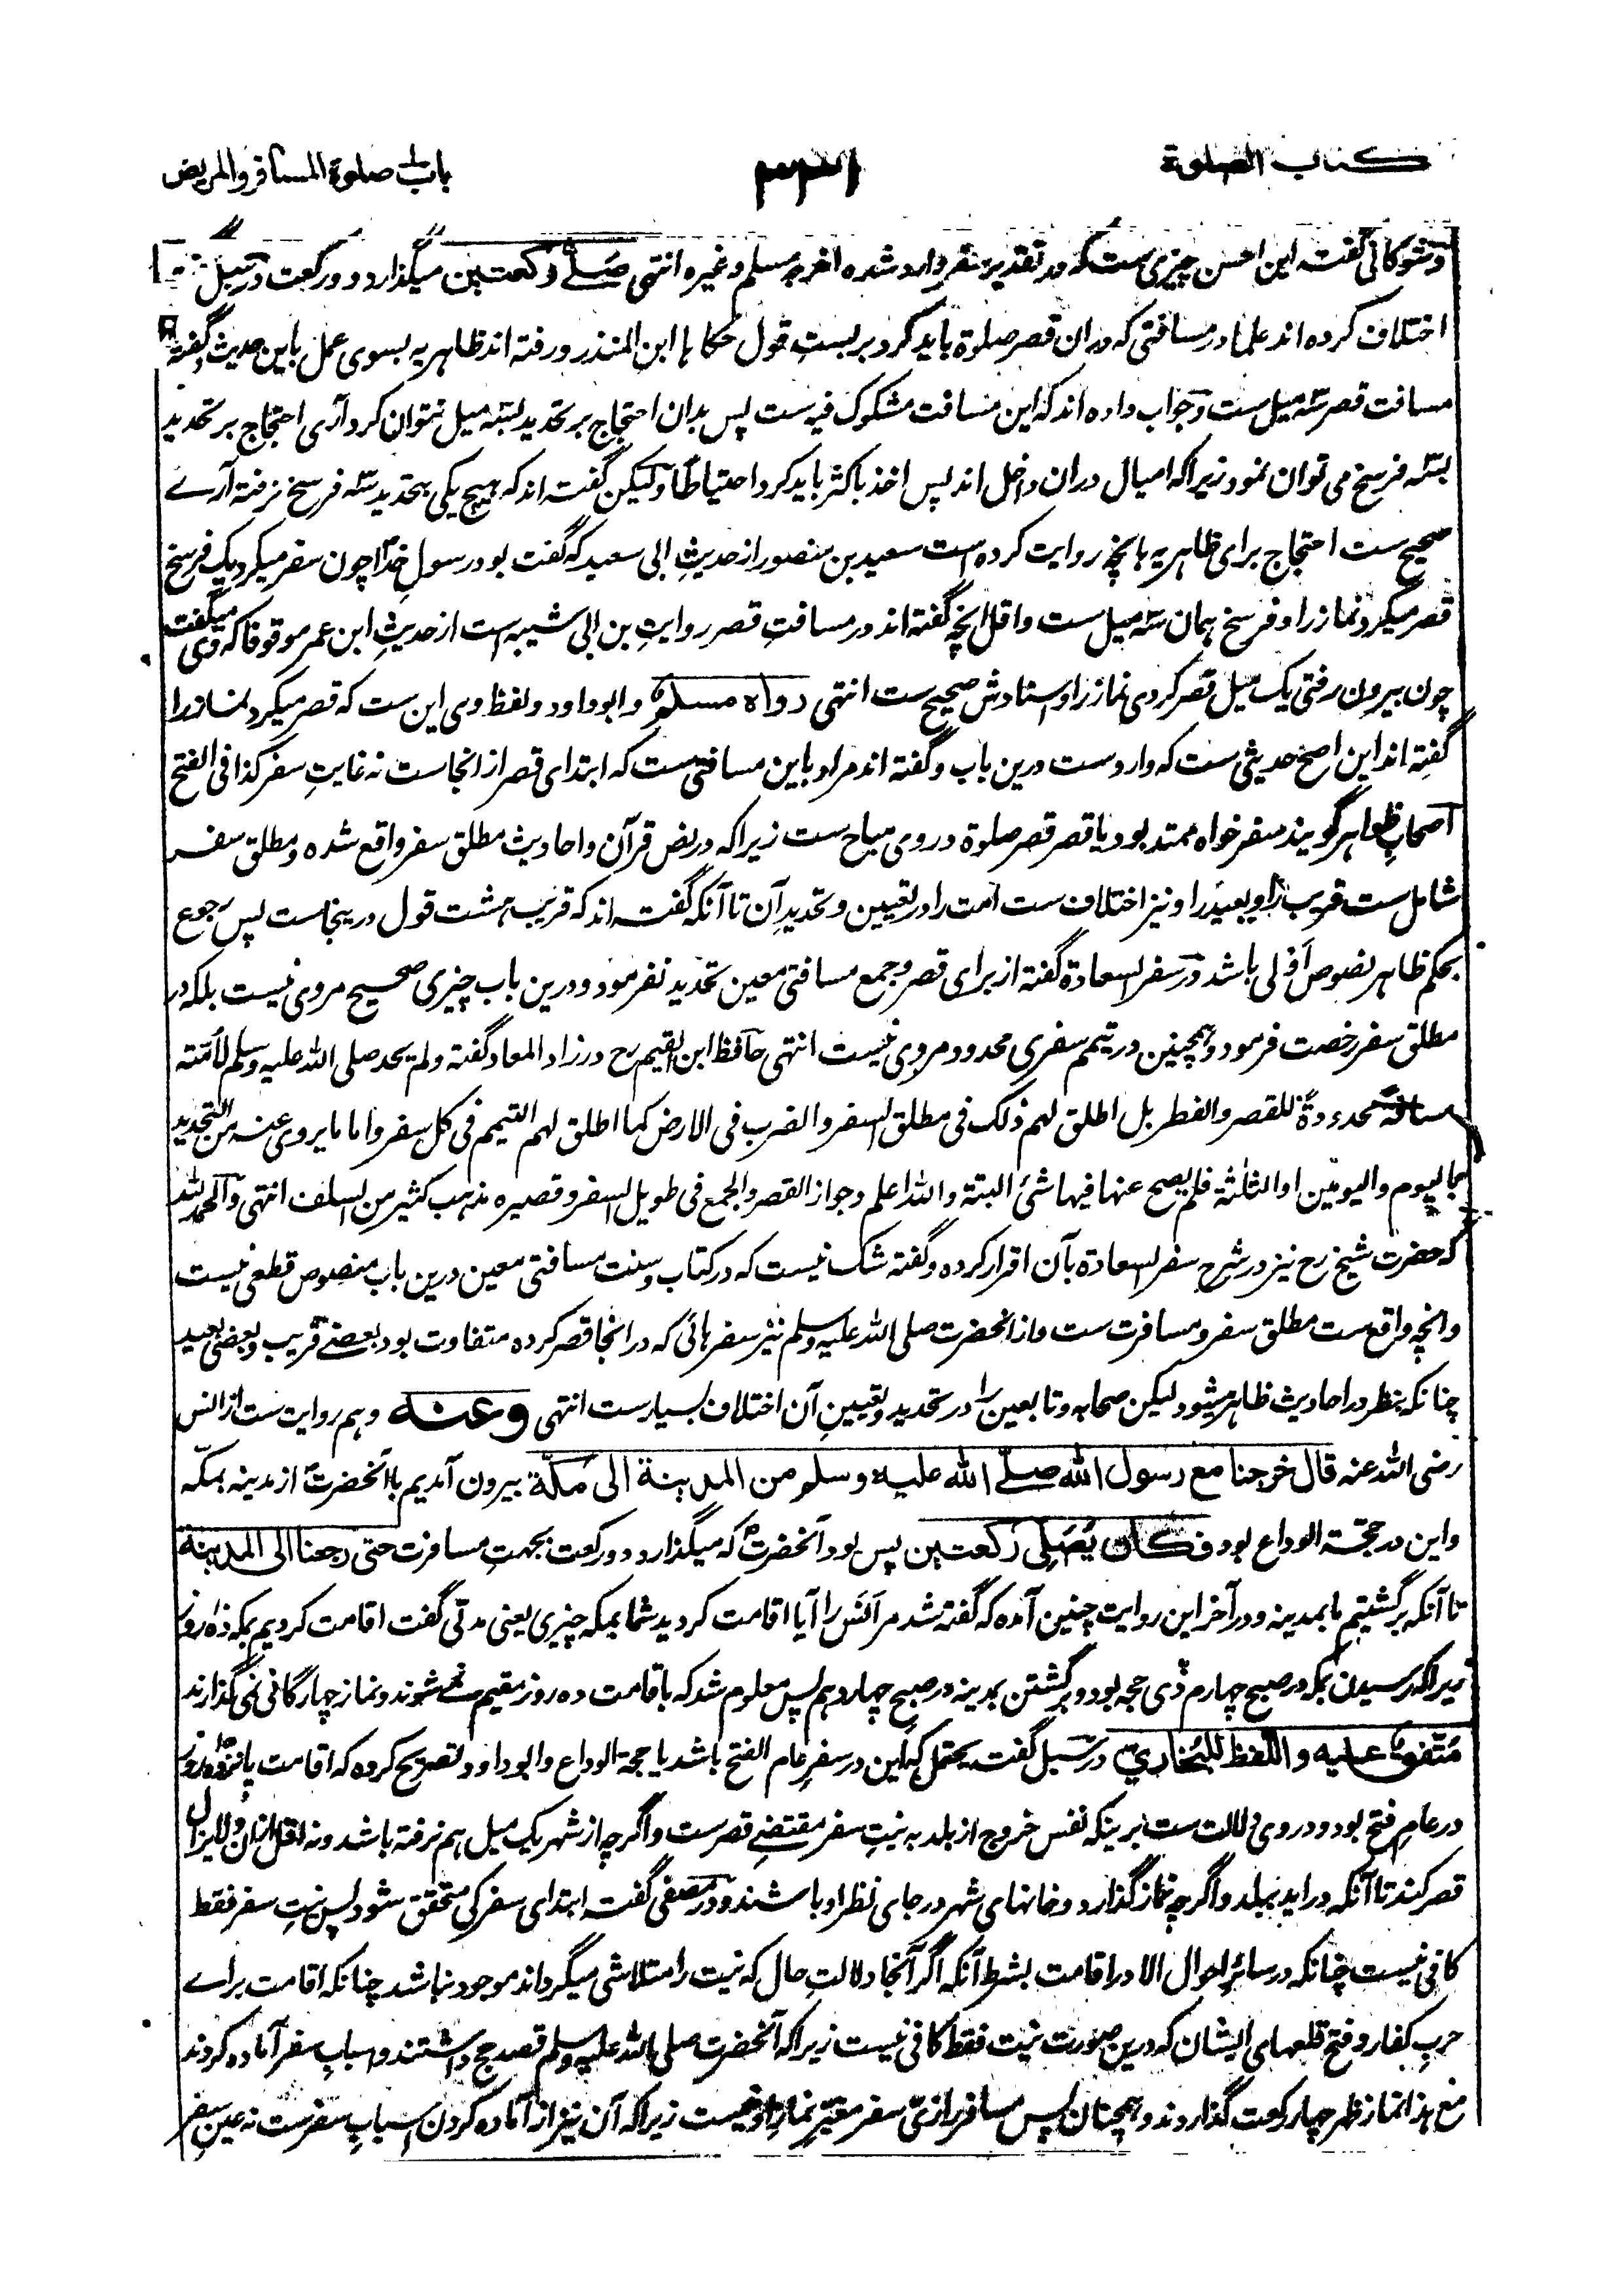 کتاب الصلوة
۳۳۱
باب صلوة المسافر والمریض
وشوکانی گفته این احسن چیزی ست که در تقدیر سفر وارد شده اخرجه مسلم وغیره انتهی صَلّے رکعتین میگذارد دو رکعت در سبل
اختلاف کرده اند علما در مسافتی که دران قصر صلوة باید کرد بر بست قول حکاها ابن المنذر و رفته اند ظاهریه بسوی عمل باین حدیث و گفته
مسافت قصر سه میل ست وجواب داده اند که این مسافت مشکوک فیه ست پس بدان احتجاج بر تحدید بسه میل نتوان کرد آری احتجاج بر تحدید
بسه فرسخ می توان نمود زیراکه امیال دران داخل اند پس اخذ باکثر باید کرد احتیاطاً ولیکن گفته اند که هیچ یکی بتحدید سه فرسخ نرفته آرے
صحیح ست احتجاج برای ظاهریه بانچه روایت کرده است سعید بن منصور از حدیثِ ابی سعید که گفت بود رسول خدا چون سفر میکرد یک فرسخ
قصر میکرد نماز را و فرسخ همان سه میل ست واقل انچه گفته اند در مسافتِ قصر روایتِ بن ابی شیبه است از حدیثِ ابن عمر موقوفا که وی میگفت
چون بیرون رفتی یک میل قصر کردی نماز را واسنادش صحیح ست انتهی رواه مسلم وابو داود ولفظ وی این ست که قصر میکرد نماز را
گفته اند این اصح حدیثی ست که وارد ست درین باب وگفته اند مراد باین مسافتی ست که ابتدای قصر از انجاست نه غایتِ سفر کذا فی الفتح
اصحابِ ظواهر گویند سفر خواه ممتد بود یا قصر قصر صلوة در وی مباح ست زیراکه در نص قرآن واحادیث مطلق سفر واقع شده و مطلق سفر
شامل ست قریب را وبعید را ونیز اختلاف ست امت را در تعیین وتحدید آن تا آنکه گفته اند که قریب هشت قول درینجاست پس رجوع
بحکم ظاهر نصوص اَولی باشد در سفر السعادة گفته از برای قصر وجمع مسافتی معین تحدید نفرمود ودرین باب چیزی صحیح مروی نیست بلکه در
مطلق سفر رخصت فرمود وهمچنین در تیمم سفری محدود مروی نیست انتهی حافظ ابن القیم رح در زاد المعاد گفته ولم یحد صلی الله علیه وسلم لأمته
مسافةً محدودةً للقصر والفطر بل اطلق لهم ذلک فی مطلق السفر والضرب فی الارض کما اطلق لهم التیمم فی کل سفر واما ما یروی عنه من التحدید
بالیوم والیومین او الثلثة فلم یصح عنها فیها شئ البتة والله اعلم وجواز القصر والجمع فی طویل السفر وقصیره مذهب کثیر من السلف انتهی والحمد لله
که حضرت شیخ رح نیز در شرح سفر السعادة بآن اقرار کرده وگفته شک نیست که در کتاب وسنت مسافتی معین درین باب منصوص قطعی نیست
وانچه واقع ست مطلق سفر ومسافرت ست واز انحضرت صلی الله علیه وسلم نیز سفرهائی که در انجا قصر کرده متفاوت بود بعضے قریب وبعضی بعید
چنانکه بنظر در احادیث ظاهر میشود لیکن صحابه وتابعین را در تحدید وتعیینِ آن اختلاف بسیار ست انتهی وعنه وهم روایت ست از انس
رضی الله عنه قال خرجنا مع رسول الله صلّے الله علیه وسلم من المدینة الی مکّة بیرون آمدیم با انحضرت از مدینه بمکّه
واین در حجة الوداع بود فکان یُصَلی رکعتین پس بود آنحضرت که میگذارد دو رکعت بجهتِ مسافرت حتی رجعنا الی المدینة
تا آنکه برگشتیم ما بمدینه ودر آخر این روایت چنین آمده که گفته شد مر اَنس را آیا اقامت کردید شما بمکه چیزی یعنی مدتی گفت اقامت کردیم بمکه ده روز
زیراکه رسیدن بمکه در صبح چهارم ذی حجه بود وبرگشتن بمدینه در صبح چهاردهم پس معلوم شد که باقامت ده روز مقیم نمے شوند ونماز چهارگانی نمی گذارند
متفق علیه واللفظ للبُخاری در سبل گفته یحتمل که این در سفرِ عام الفتح باشد یا حجة الوداع وابو داود تصریح کرده که اقامت پانزده روز
در عامِ فتح بود ودر وی دلالت ست برینکه نفس خروج از بلد به نیتِ سفر مقتضے قصر ست واگرچه از شهر یک میل هم نرفته باشد ونه اقل ازان ولایزال
قصر کند تا آنکه در اید ببلد واگرچه نماز گذارد وخانهای شهر در جای نظر او باشند ودر مصفی گفته ابتدای سفر کی متحقق شود پس نیتِ سفر فقط
کافی نیست چنانکه در سائر احوال الا در اقامت بشرط آنکه اگر آنجا دلالتِ حال که نیت را متلاشی میگرداند موجود نباشد چنانکه اقامت براے
حرب کفار وفتح قلعهای ایشان که درین صورت نیت فقط کافی نیست زیراکه آنحضرت صلی الله علیه وسلم قصد حج داشتند واسبابِ سفر آماده کردند
مع هذا نماز ظهر چهار رکعت گذاردند وهمچنان پس مسافر از سفر مغیر نماز او نیست زیراکه آن نیز از آماده کردن اسبابِ سفر ست نه عینِ سفر